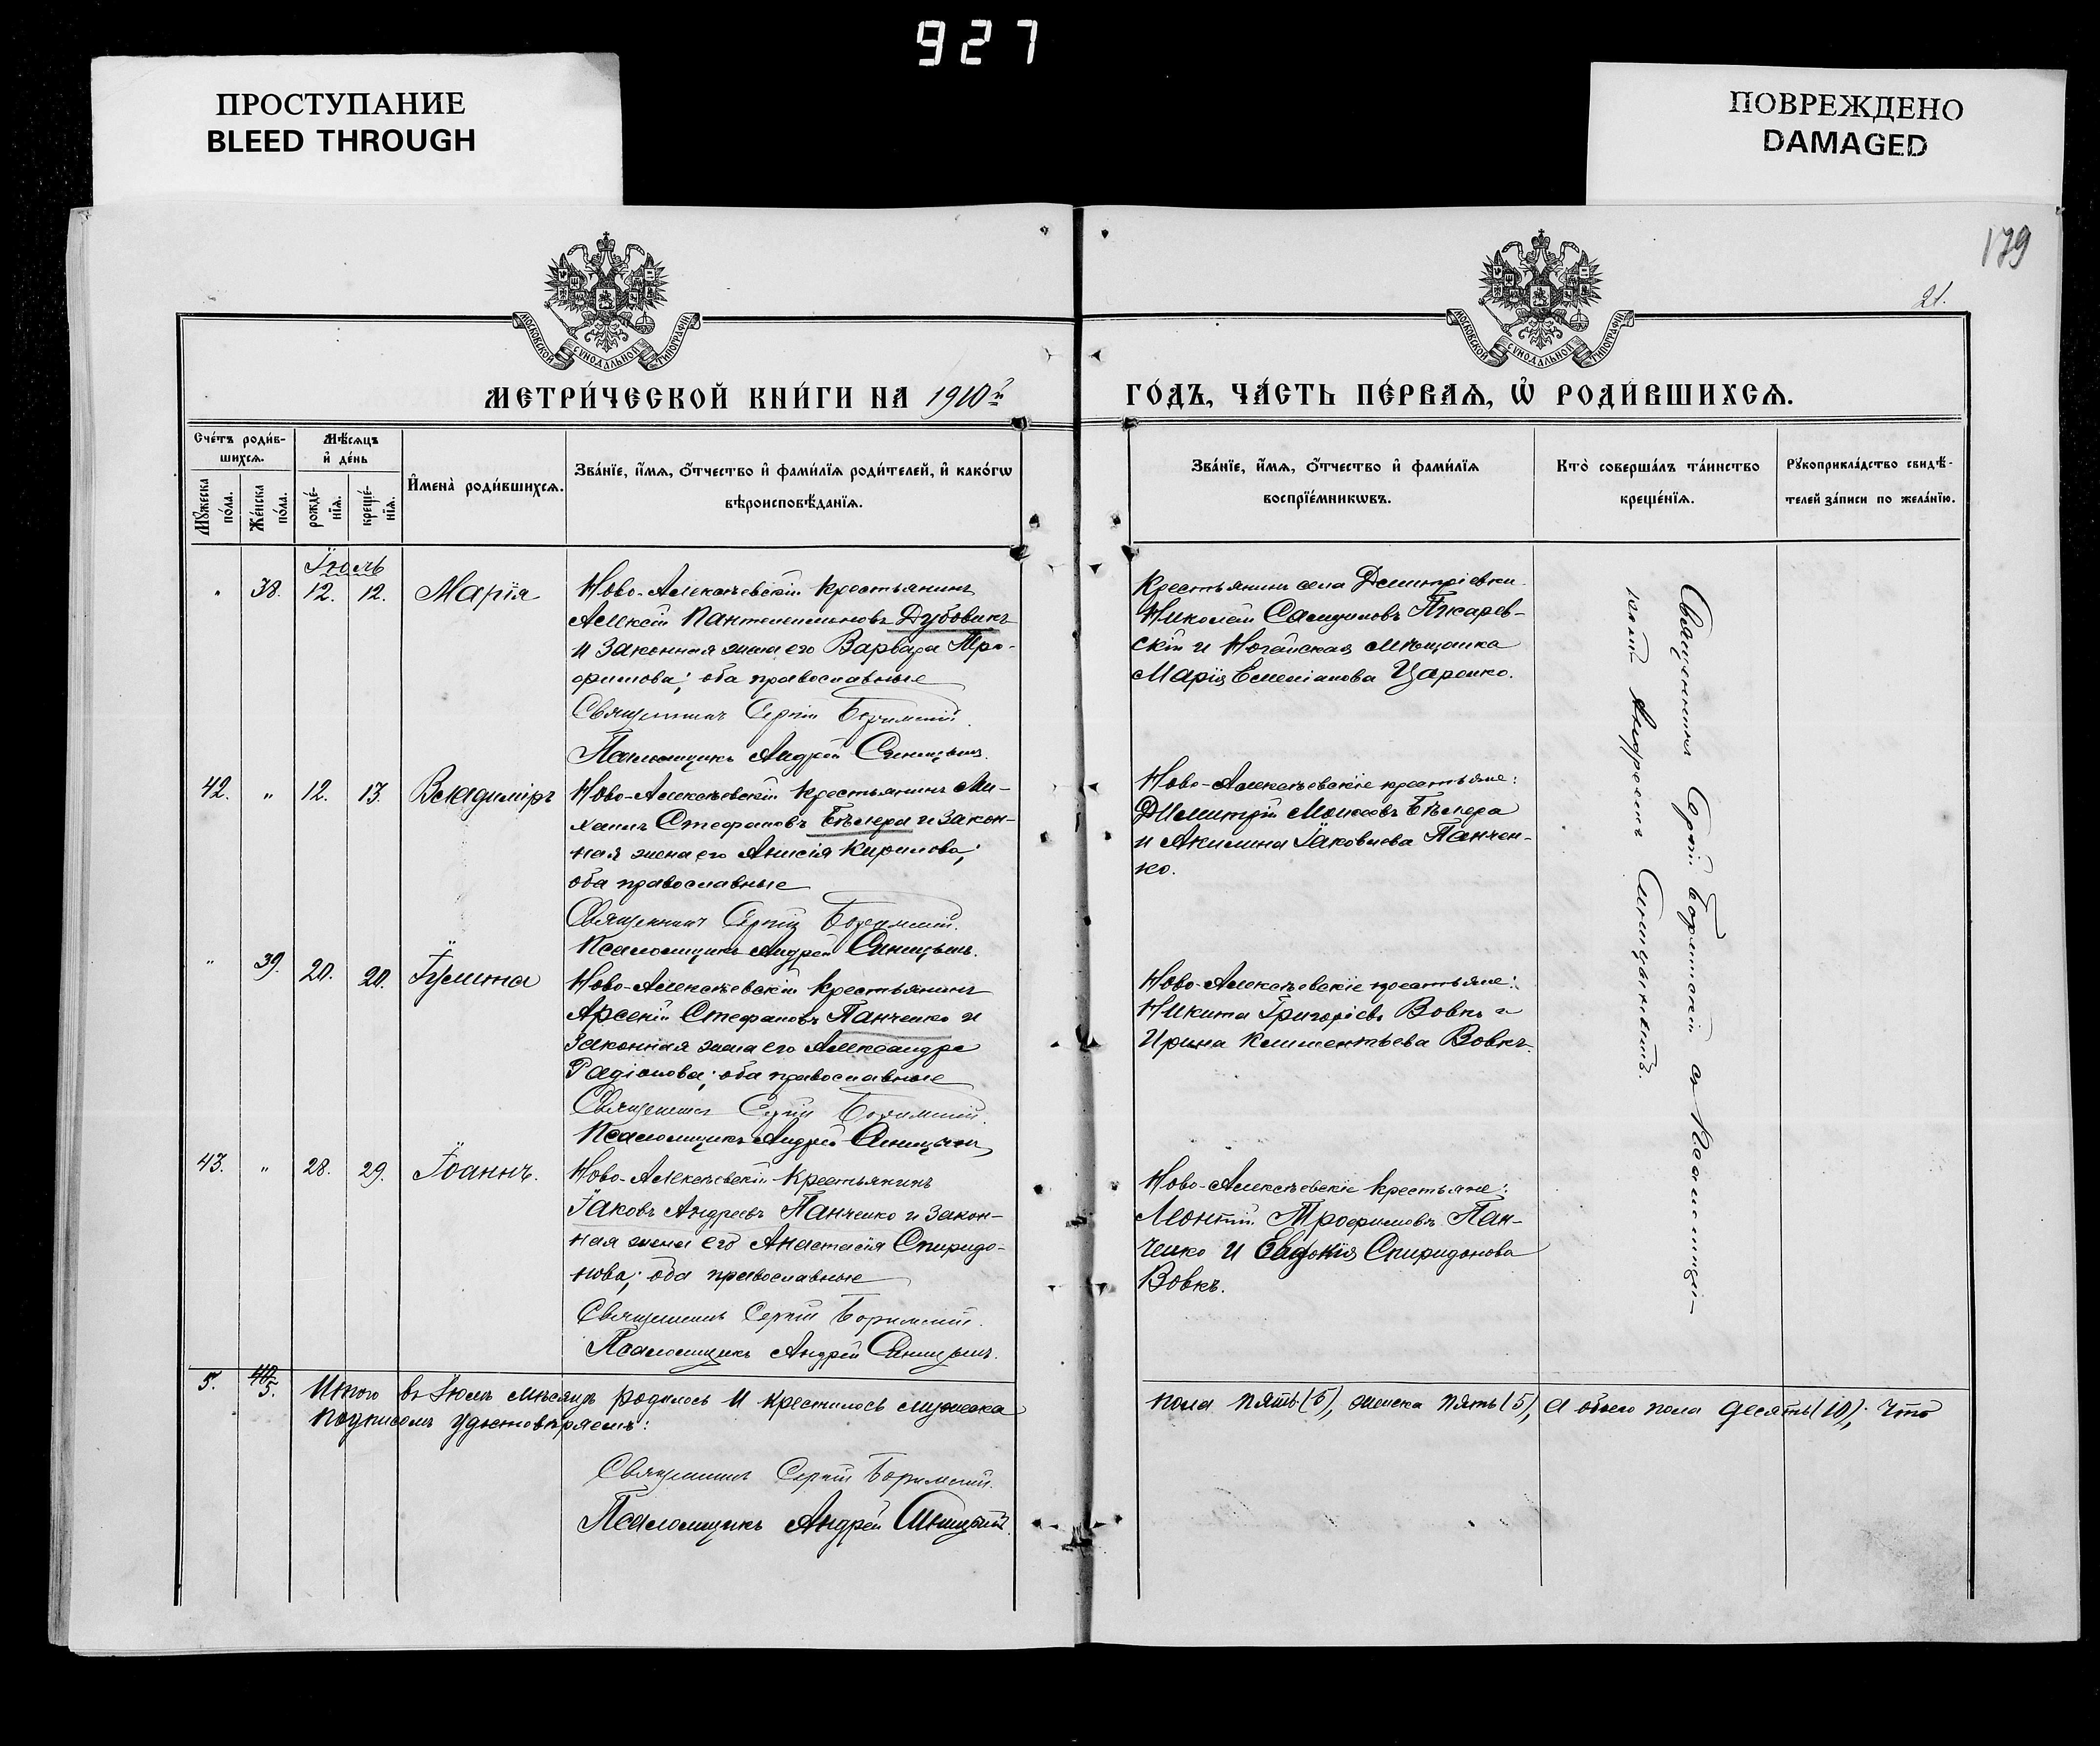 927
ПРОСТУПАНИЕ
BLEED THROUGH
ПОВРЕЖДЕНО
DAMAGED
179
21.
МОСКОВСКОЙ СѴНОДАЛЬНОЙ ТИПОГРАФІИ
МОСКОВСКОЙ СѴНОДАЛЬНОЙ ТИПОГРАФІИ
МЕТРИ́ЧЕСКОЙ КНИ́ГИ НА 1910й
ГО́ДЪ, ЧА́СТЬ ПЕ́РВАѦ, Ѡ҆ РОДИ́ВШИХСѦ.
Сче́тъ роди́в-
шихсѧ.
Мѣ́сѧцъ
и҆ де́нь
Мꙋ́жеска
по́ла.
Же́нска
по́ла.
рожде́-
нїѧ.
креще́-
нїѧ.
И҆мена̀ роди́вшихсѧ.
Зва́нїе, и҆́мѧ, ѻ҆́тчество и҆ фами́лїѧ роди́телей, и҆ како́гѡ
вѣроисповѣ́данїѧ.
Зва́нїе, и҆́мѧ, ѻ҆́тчество и҆ фами́лїѧ
воспрїе́мникѡвъ.
Кто̀ соверша́лъ та́инство
креще́нїѧ.
Рꙋкоприкла́дство свидѣ́-
телей за́писи по жела́нїю.
Іюль
" 38. 12. 12. Марія
Ново-Алексѣевскій крестьянинъ
Алексій Пантелеимоновъ Дубовикъ
и законная жена его Варвара Тро-
фимова; оба православные
Священникъ Сергій Боримскій.
Псаломщикъ Андрей Синицынъ.
Крестьянинъ села Димитріевки
Николай Самуиловъ Пжарев-
скій и Ногайская мѣщанка
Марія Емеліанова Царенко.
42. " 12. 13. Владиміръ
Ново-Алексѣевскій крестьянинъ Ми-
хаилъ Стефановъ Бѣлера и закон-
ная жена его Анисія Кирилова;
оба православные
Священникъ Сергій Боримскій.
Псаломщикъ Андрей Синицынъ.
Ново-Алексѣевскіе крестьяне:
Димитрій Моисеевъ Бѣлера
и Акилина Іаковлева Панчен-
ко.
" 39. 20. 20. Іулитта
Ново-Алексѣевскій крестьянинъ
Арсеній Стефановъ Панченко и
законная жена его Александра
Радіонова; оба православные
Священникъ Сергій Боримскій.
Псаломщикъ Андрей Синицынъ
Ново-Алексѣевскіе крестьяне:
Никита Григоріевъ Вовкъ и
Ирина Климентьева Вовкъ.
43. " 28. 29. Іоаннъ.
Ново-Алексѣевскій крестьянинъ
Іаковъ Андреевъ Панченко и закон-
ная жена его Анастасія Спиридо-
нова; оба православные
Священникъ Сергій Боримскій.
Псаломщикъ Андрей Синицынъ.
Ново-Алексѣевскіе крестьяне:
Леонтій Трофимовъ Пан-
ченко и Евдокія Спиридонова
Вовкъ.
Священникъ Сергій Боримскій съ Псаломщи-
комъ Андреемъ Синицынымъ.
5. 40 5. Итого въ Іюлѣ мѣсяцѣ родилось и крестилось мужеска пола пять (5), женска пять (5), а обоего пола десять (10); что
подписомъ удостовѣряемъ:
Священникъ Сергій Боримскій.
Псаломщикъ Андрей Синицынъ.